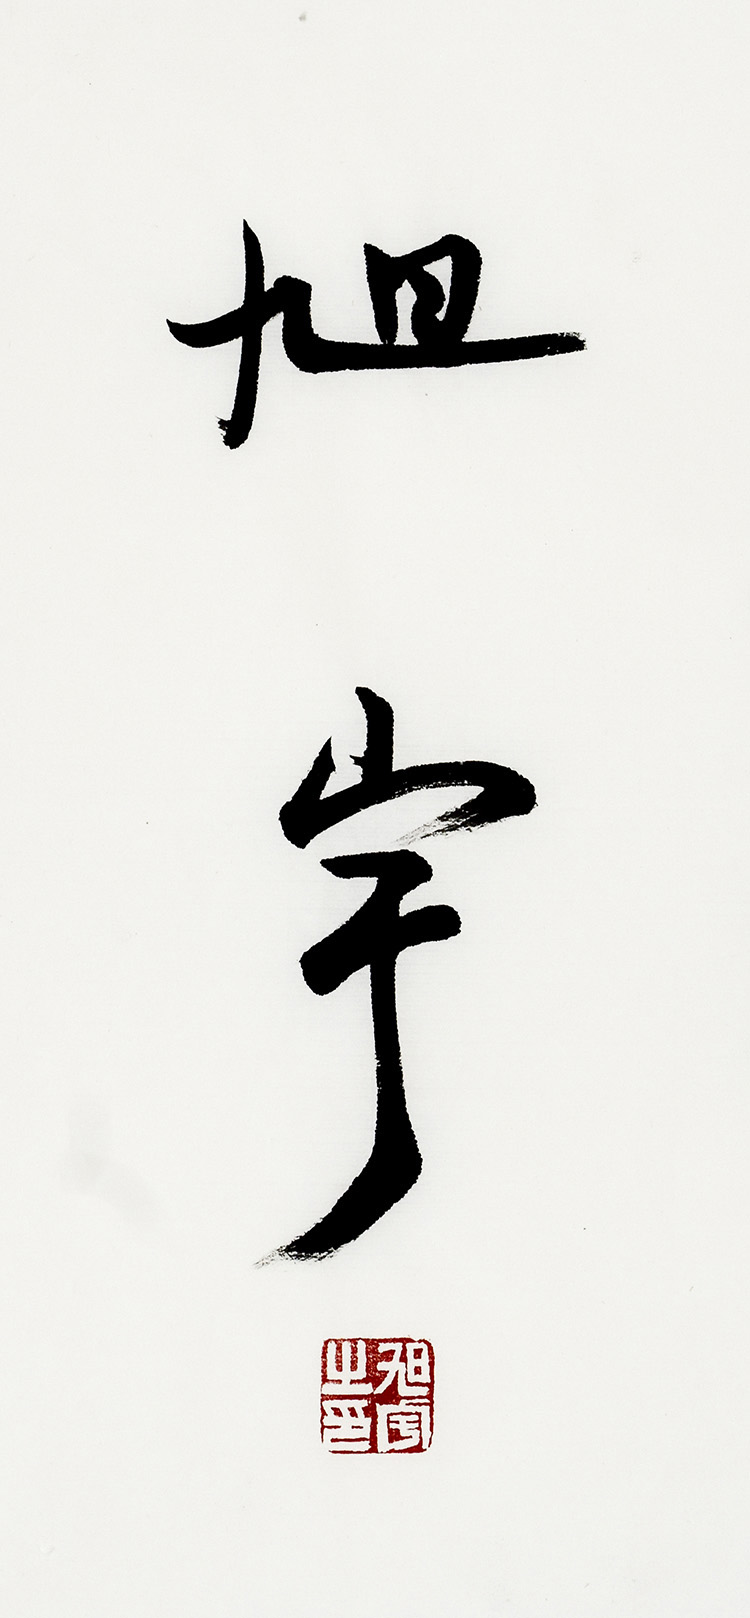 旭宇
旭宇之印